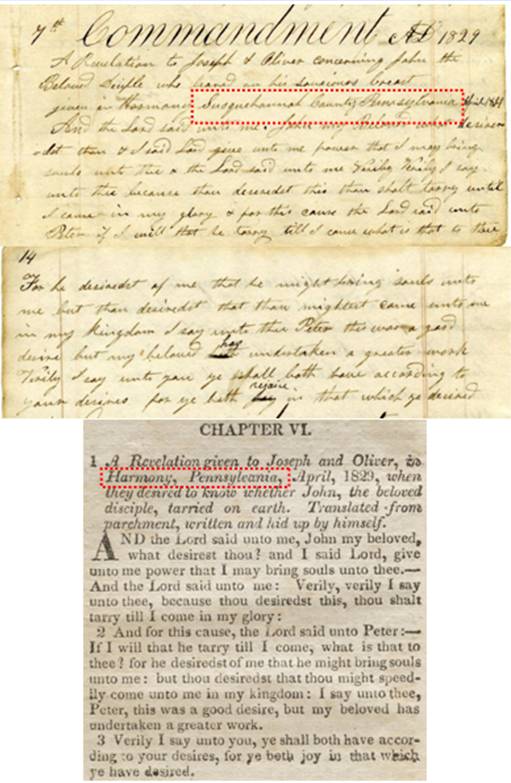 7th Commandment AD 1829
A Revelation to Joseph & Oliver concerning John the
Beloved Diciple who leaned on his saviours breast
given in Harmony Susquehannah County Pennsylvania April 1829
And the Lord said unto me John my Beloved what desires
-det thou & I said Lord give unto me power that I may bring
souls unto thee & the Lord said unto me Verily Verily I say
unto thee because thou desiredst this thou shalt tarry until
I come in my glory & for this cause the Lord said unto
Peter if I will that he tarry till I come what is that to thee
14
For he desiredst of me that he might bring souls unto
me but thou desiredst that thou mightest come unto me
in my kingdom I say unto thee Peter this was a good
desire but my beloved has undertaken a greater work
Verily I say unto you ye shall both have according to
your desires for ye both rejoice in that which ye desired
CHAPTER VI.
1 A Revelation given to Joseph and Oliver, in
Harmony, Pennsylvania, April, 1829, when
they desired to know whether John, the beloved
disciple, tarried on earth. Translated from
parchment, written and hid up by himself.
AND the Lord said unto me, John my beloved,
what desirest thou? and I said Lord, give
unto me power that I may bring souls unto thee.—
And the Lord said unto me: Verily, verily I say
unto thee, because thou desiredst this, thou shalt
tarry till I come in my glory:
2 And for this cause, the Lord said unto Peter:—
If I will that he tarry till I come, what is that to
thee? for he desiredst of me that he might bring souls
unto me: but thou desiredst that thou might speed-
ily come unto me in my kingdom: I say unto thee,
Peter, this was a good desire, but my beloved has
undertaken a greater work.
3 Verily I say unto you, ye shall both have accor-
ding to your desires, for ye both joy in that which
ye have desired.